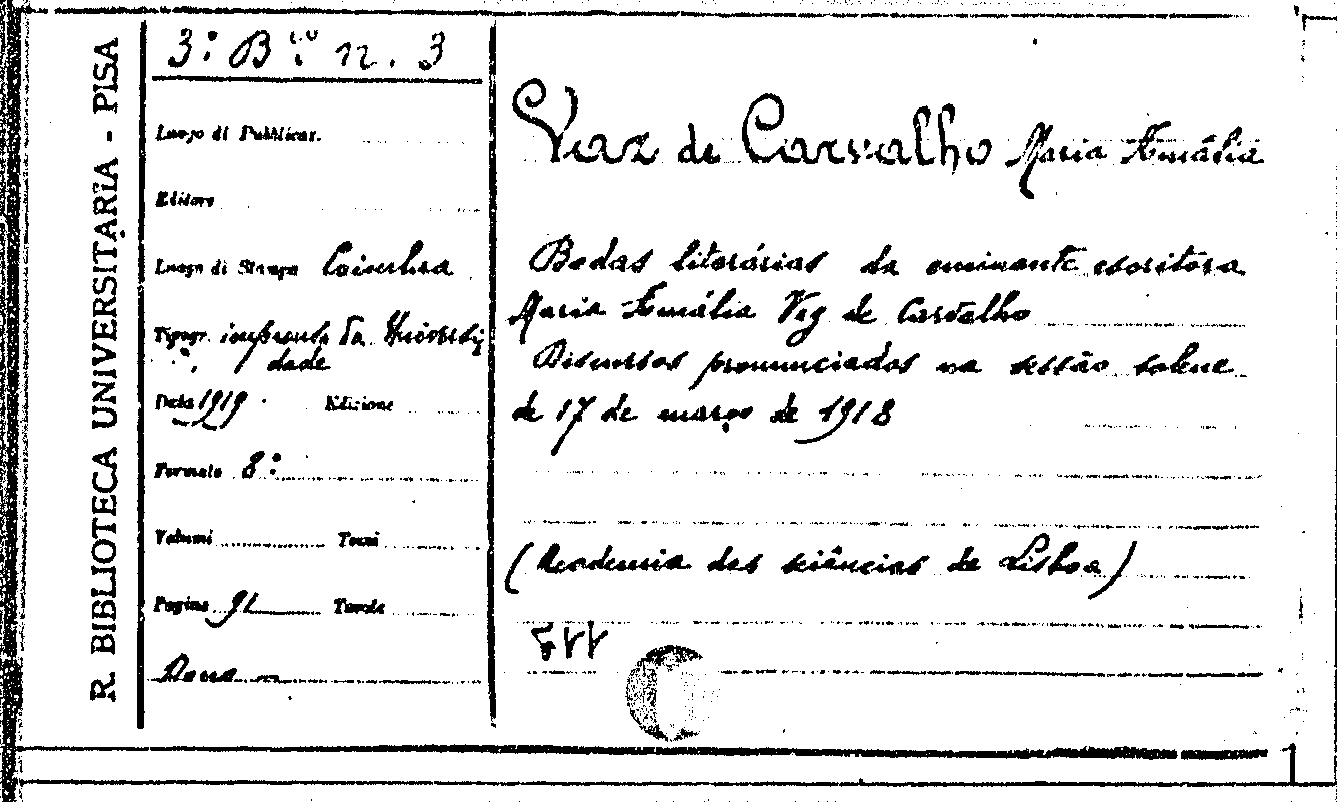 R. BIBLIOTECA UNIVERSITARIA - PISA
3.° B.co n. 3
Luogo di Pubblicaz.
Editore
Luogo di Stampa Coimbra
Tipogr. imprensa da Universi
dade
Data 1919 Edizione
Formato 8.°
Volumi Tomi
Pagine 91 Tavole
Vaz de Carvalho Maria Amália
Bodas literárias da eminente escritora
Maria Amália Vaz de Carvalho
Discursos pronunciados na sessão solene
de 17 de março de 1918
(Academia das sciências de Lisboa)
1